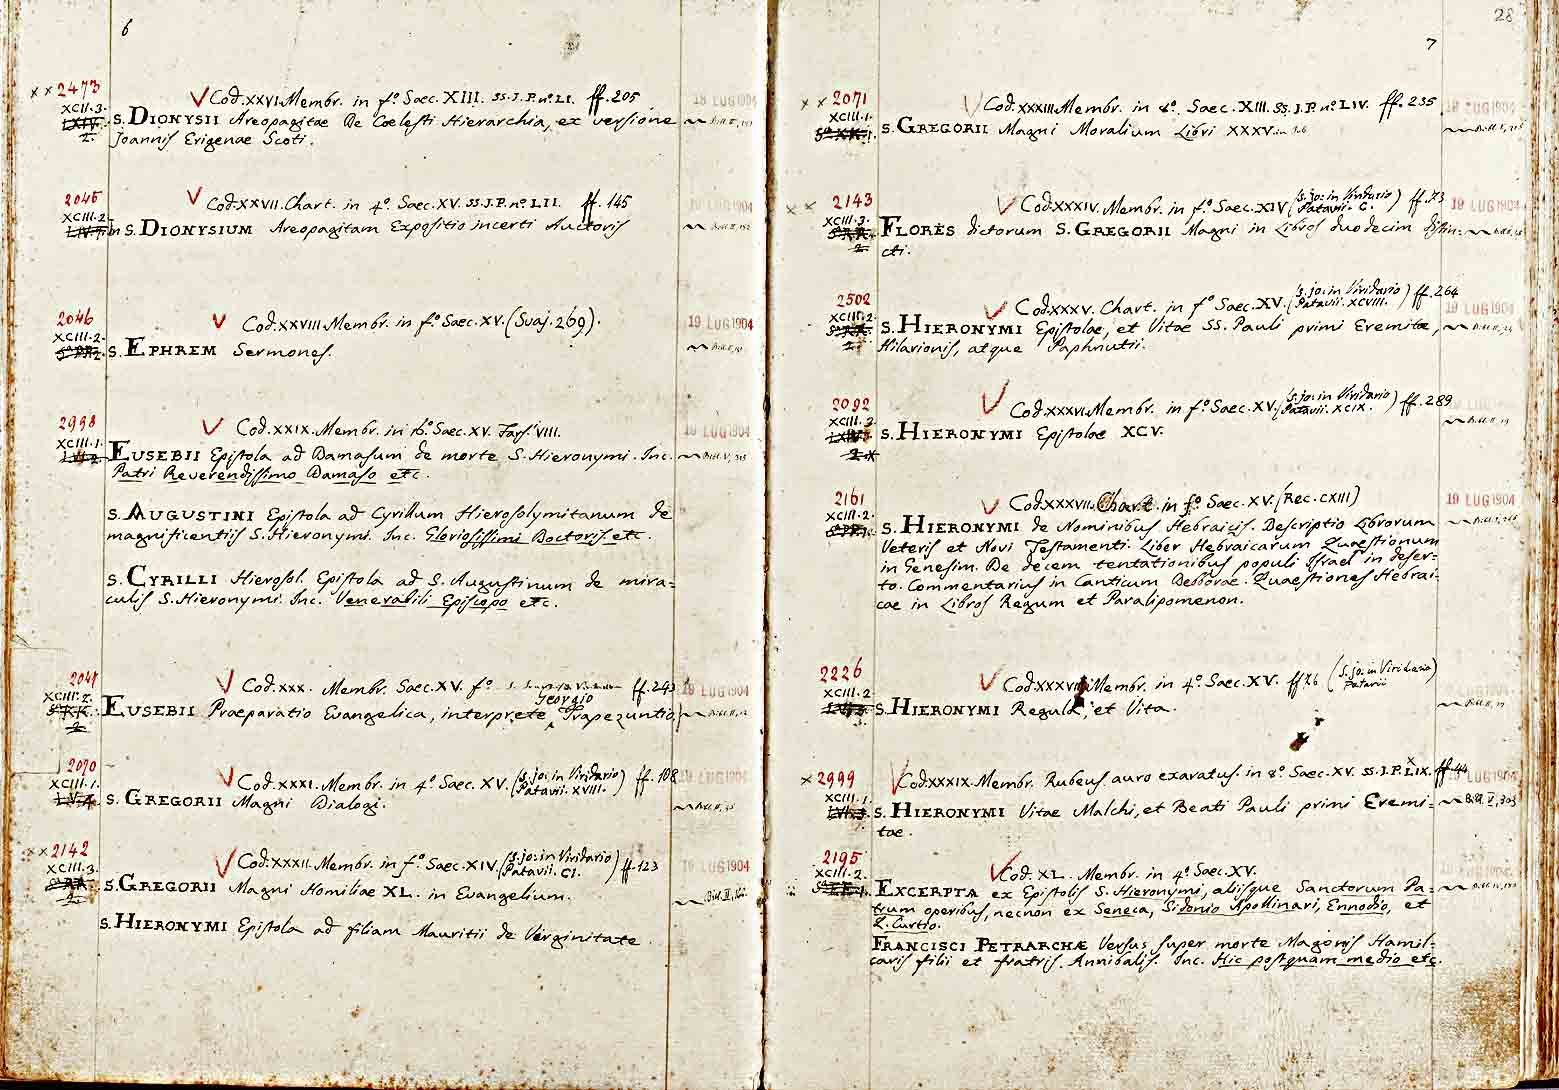 6
××2473
XCII.3.
V Cod.XXVI. Membr. in f.º Saec. XIII. SS.J.P.nº LI. ff.205
18 LUG 1904
S. DIONYSII Areopagitae De Coelesti Hierarchia, ex versione
Joannis Erigenae Scoti.
2045
XCIII.2
V Cod.XXVII. Chart. in 4.º Saec. XV. SS.J.P.nº LII. ff.145
19 LUG 1904
In S. DIONYSIUM Areopagitam Expositio incerti Auctoris
2046
XCIII.2.
V Cod.XXVIII. Membr. in f.º Saec. XV. (Svaj.269).
19 LUG 1904
S. EPHREM Sermones.
2998
XCIII.1.
V Cod.XXIX. Membr. in 16.º Saec. XV. Fars. VIII.
19 LUG 1904
EUSEBII Epistola ad Damasum de morte S. Hieronymi. Inc.
Patri Reverendissimo Damaso etc.
S. AUGUSTINI Epistola ad Cyrillum Hierosolymitanum de
magnificentiis S. Hieronymi. Inc. Gloriosissimi Doctoris etc.
S. CYRILLI Hierosol. Epistola ad S. Augustinum de mira=
culis S. Hieronymi. Inc. Venerabili Episcopo etc.
XCIII.2.
V Cod.XXX. Membr. Saec. XV. f.º ff.243
19 LUG 1904
Georgio
EUSEBII Praeparatio Evangelica, interprete Trapezuntio
2070
XCIII.1.
V Cod.XXXI. Membr. in 4.º Saec. XV. (S.Jo: in Viridario Patavii. XVIII.) ff.108
19 LUG 1904
S. GREGORII Magni Dialogi.
××2142
XCIII.3.
V Cod.XXXII. Membr. in f.º Saec. XIV. (S.Jo: in Viridario Patavii. CI.) ff.123
19 LUG 1904
S. GREGORII Magni Homiliae XL. in Evangelium.
S. HIERONYMI Epistola ad filiam Mauritii de Virginitate.
28
7
××2071
XCIII.1.
V Cod.XXXIII. Membr. in 8.º Saec. XIII. SS.J.P.nº LIV. ff.235
18 LUG 1904
S. GREGORII Magni Moralium Libri XXXV.
××2143
XCIII.3.
V Cod.XXXIV. Membr. in f.º Saec. XIV (S.Jo: in Viridario Patavii. C.) ff.73
19 LUG 1904
FLORES dictorum S. GREGORII Magni in Libros duodecim distin=
cti.
2502
XCIII.2.
V Cod.XXXV. Chart. in f.º Saec. XV. (S.Jo: in Viridario Patavii. XCVIII.) ff.264
19 LUG 1904
S. HIERONYMI Epistolae, et Vitae SS. Pauli primi Eremitae,
Hilarionis, atque Paphnutii.
2092
XCIII.3.
V Cod.XXXVI. Membr. in f.º Saec. XV. (S.Jo: in Viridario Patavii. XCIX.) ff.289
S. HIERONYMI Epistolae XCV.
2161
XCIII.2.
V Cod.XXXVII. Chart. in f.º Saec. XV. (Rec. CXIII)
19 LUG 1904
S. HIERONYMI de Nominibus Hebraicis. Descriptio Librorum
Veteris et Novi Testamenti. Liber Hebraicarum Quaestionum
in Genesim. De decem tentationibus populi Israel in deser=
to. Commentarius in Canticum Debborae. Quaestiones Hebrai=
cae in Libros Regum et Paralipomenon.
2226
XCIII.2
V Cod.XXXVIII. Membr. in 4.º Saec. XV. ff.76 (S.Jo: in Viridario Patavii)
S. HIERONYMI Regula, et Vita.
×2999
XCIII.1.
V Cod.XXXIX. Membr. Rubeus auro exaratus. in 8.º Saec. XV. SS.J.P.LIX. ff.44
19 LUG 1904
S. HIERONYMI Vitae Malchi, et Beati Pauli primi Eremi=
tae.
2195
XCIII.2.
V Cod. XL. Membr. in 4.º Saec. XV.
EXCERPTA ex Epistolis S. Hieronymi, aliisque Sanctorum Pa=
trum operibus, necnon ex Seneca, Sidonio Apollinari, Ennodio, et
Q. Curtio.
FRANCISCI PETRARCHÆ Versus super morte Magonis Hamil=
caris filii et fratris Annibalis. Inc. Hic postquam medio etc.